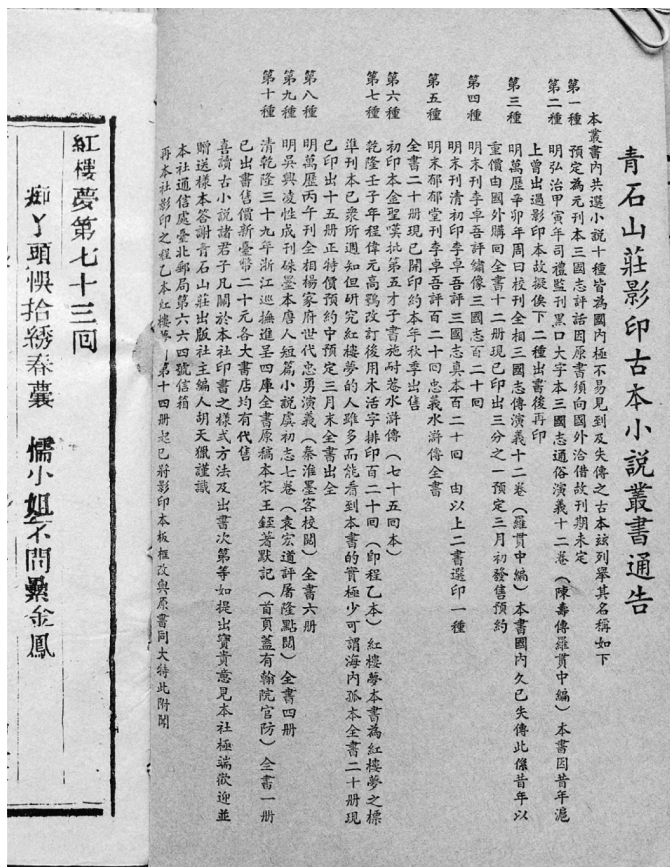 青石山莊影印古本小說叢書通告
本叢書內共選小說十種皆為國內極不易見到及失傳之古本茲列舉其名稱如下
第一種 預定為元刊本三國志評話因原書須向國外洽借故刊期未定
第二種 明弘治甲寅年司禮監刊黑口大字本三國志通俗演義十二卷（陳壽傳羅貫中編）本書因昔年滬
上曾出過影印本故擬俟下二種出書後再印
第三種 明萬歷辛卯年周曰校刊全相三國志傳演義十二卷（羅貫中編）本書國內久已失傳此係昔年以
重價由國外購回全書十二册現已印出三分之一預定三月初發售預約
第四種 明末刊李卓吾評繡像三國志百二十回
明末刊清初印李卓吾評三國志真本百二十回 由以上二書選印一種
第五種 明末郁郁堂刊李卓吾評百二十回忠義水滸傳全書
全書二十册現已開印約本年秋季出售
第六種 初印本金聖嘆批第五才子書施耐菴水滸傳（七十五回本）
第七種 乾隆壬子年程偉元高鶚改訂後用木活字排印百二十回（即程乙本）紅樓夢本書為紅樓夢之標
準刊本已衆所週知但研究紅樓夢的人雖多而能看到本書的實極少可謂海內孤本全書二十册現
已印出十五册正特價預約中預定三月末全書出全
第八種 明萬歷丙午刊全相楊家府世代忠勇演義（秦淮墨客校閱）全書六册
第九種 明吳興凌性成刊硃墨本唐人短篇小說虞初志七卷（袁宏道評屠隆點閱）全書四册
第十種 清乾隆三十九年浙江巡撫進呈四庫全書原稿本宋王銍著默記（首頁蓋有翰院官防）全書一册
已出書售價新臺幣二十元各大書店均有代售
喜讀古小說諸君子凡關於本社印書之樣式方法及出書次第等如提出寶貴意見本社極端歡迎並
贈送樣本答謝青石山莊出版社主編人胡天獵謹識
本社通信處臺北郵局第六六四號信箱
再本社影印之程乙本紅樓夢第十四册起已將影印本板框改與原書同大特此附聞
紅樓夢第七十三回
痴丫頭悞拾綉春囊 懦小姐不問纍金鳳